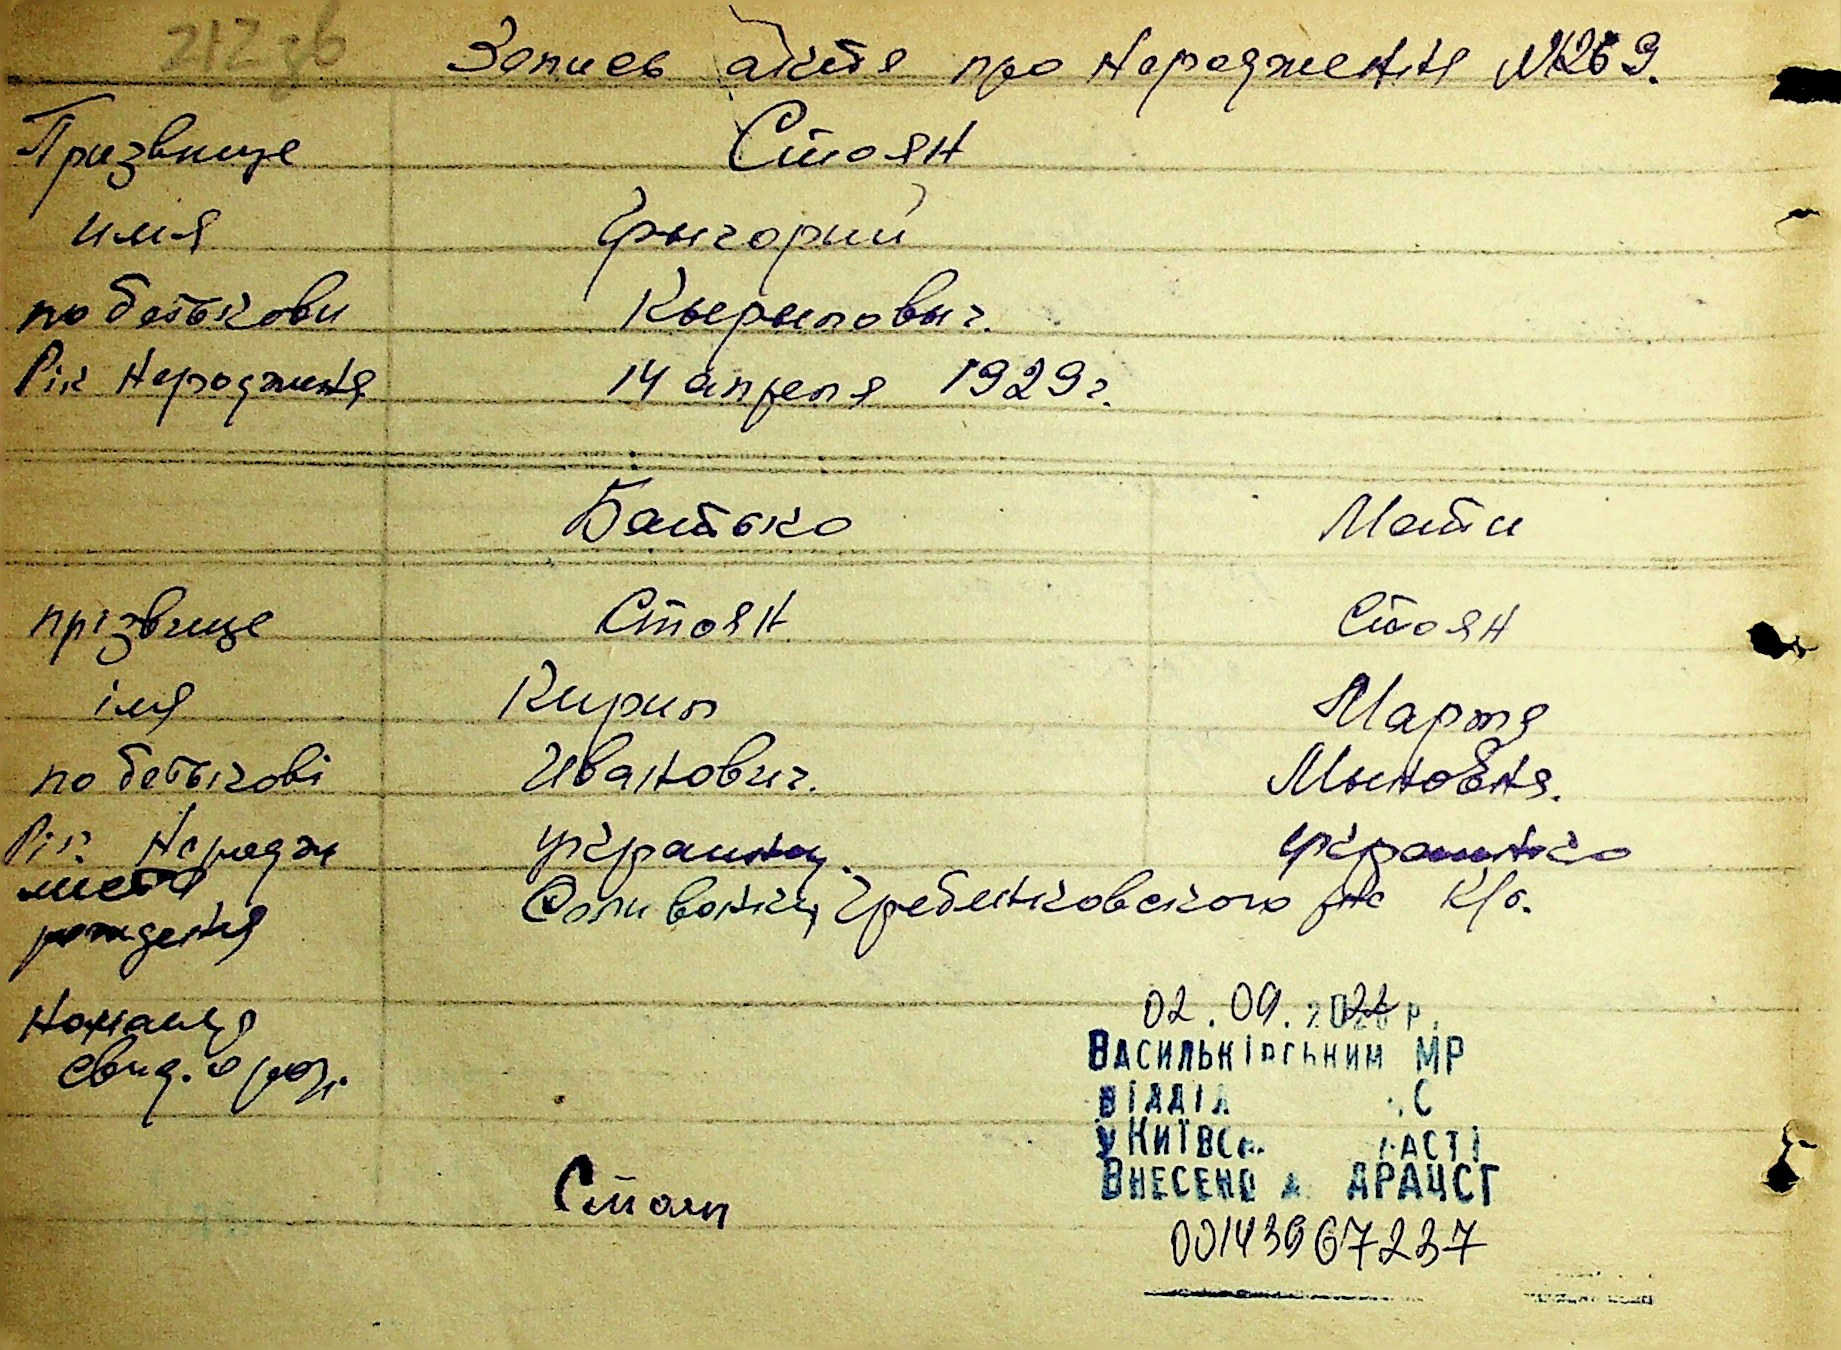 212 зв
Запись актя про Народження №1269.
Призвище Стоян
имя Грыгорий
по батькови Кырыловыч.
Рік Народження 14 апреля 1929 г.
Батько Мати
прізвище Стоян Стоян
імя Кирил Марта
по батькові Иванович. Мыновня.
Рік Нородж украинец. украинко
место рождения Соливонки Гребенковского рна К/о.
02.09.2022 р.
Васильківським МР
відділ С
у Київс асті
Внесено д ДРАЦСГ
свид. о рож.
Стоян
00143967237